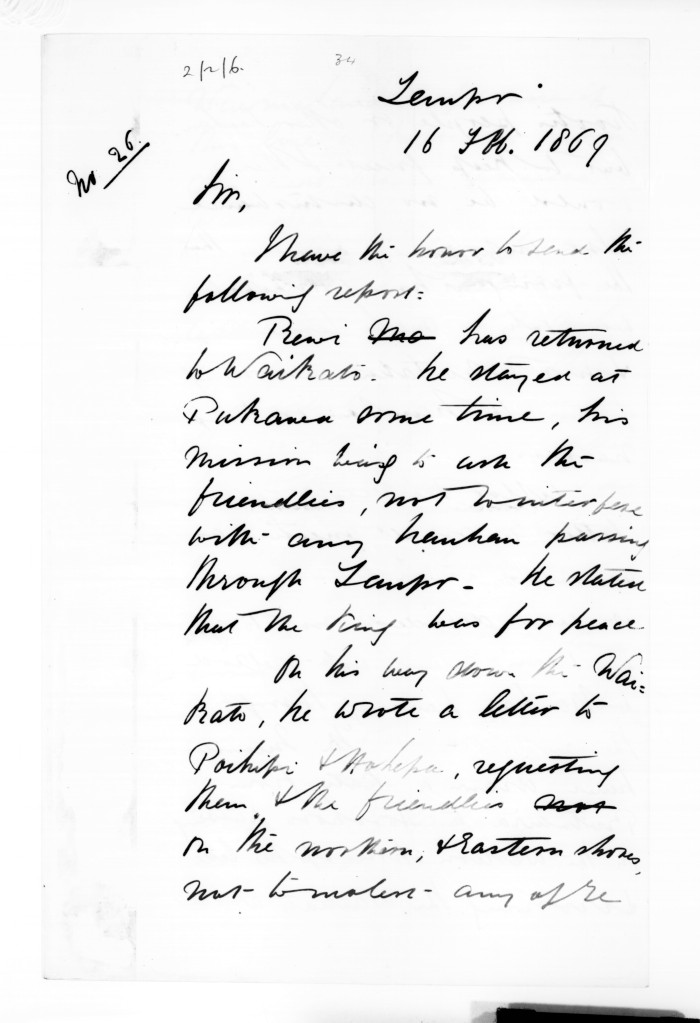 2/2/6.
34
Tempr
16 Feb. 1869
No 26.
Sir,
I have the honor to send the
following report:
Rewi has returned
to Waikato. he stayed at
Pukawa some time, his
mission being to ask the
friendlies, not to interfere
with any hauhau passing
through Tempr - he stated
that the King was for peace
On his way down the Wai=
kato, he wrote a letter to
Poihipi & Hohepa, requesting
them, & the friendlies not
on the northern, & Eastern shores,
not to molest any of Te